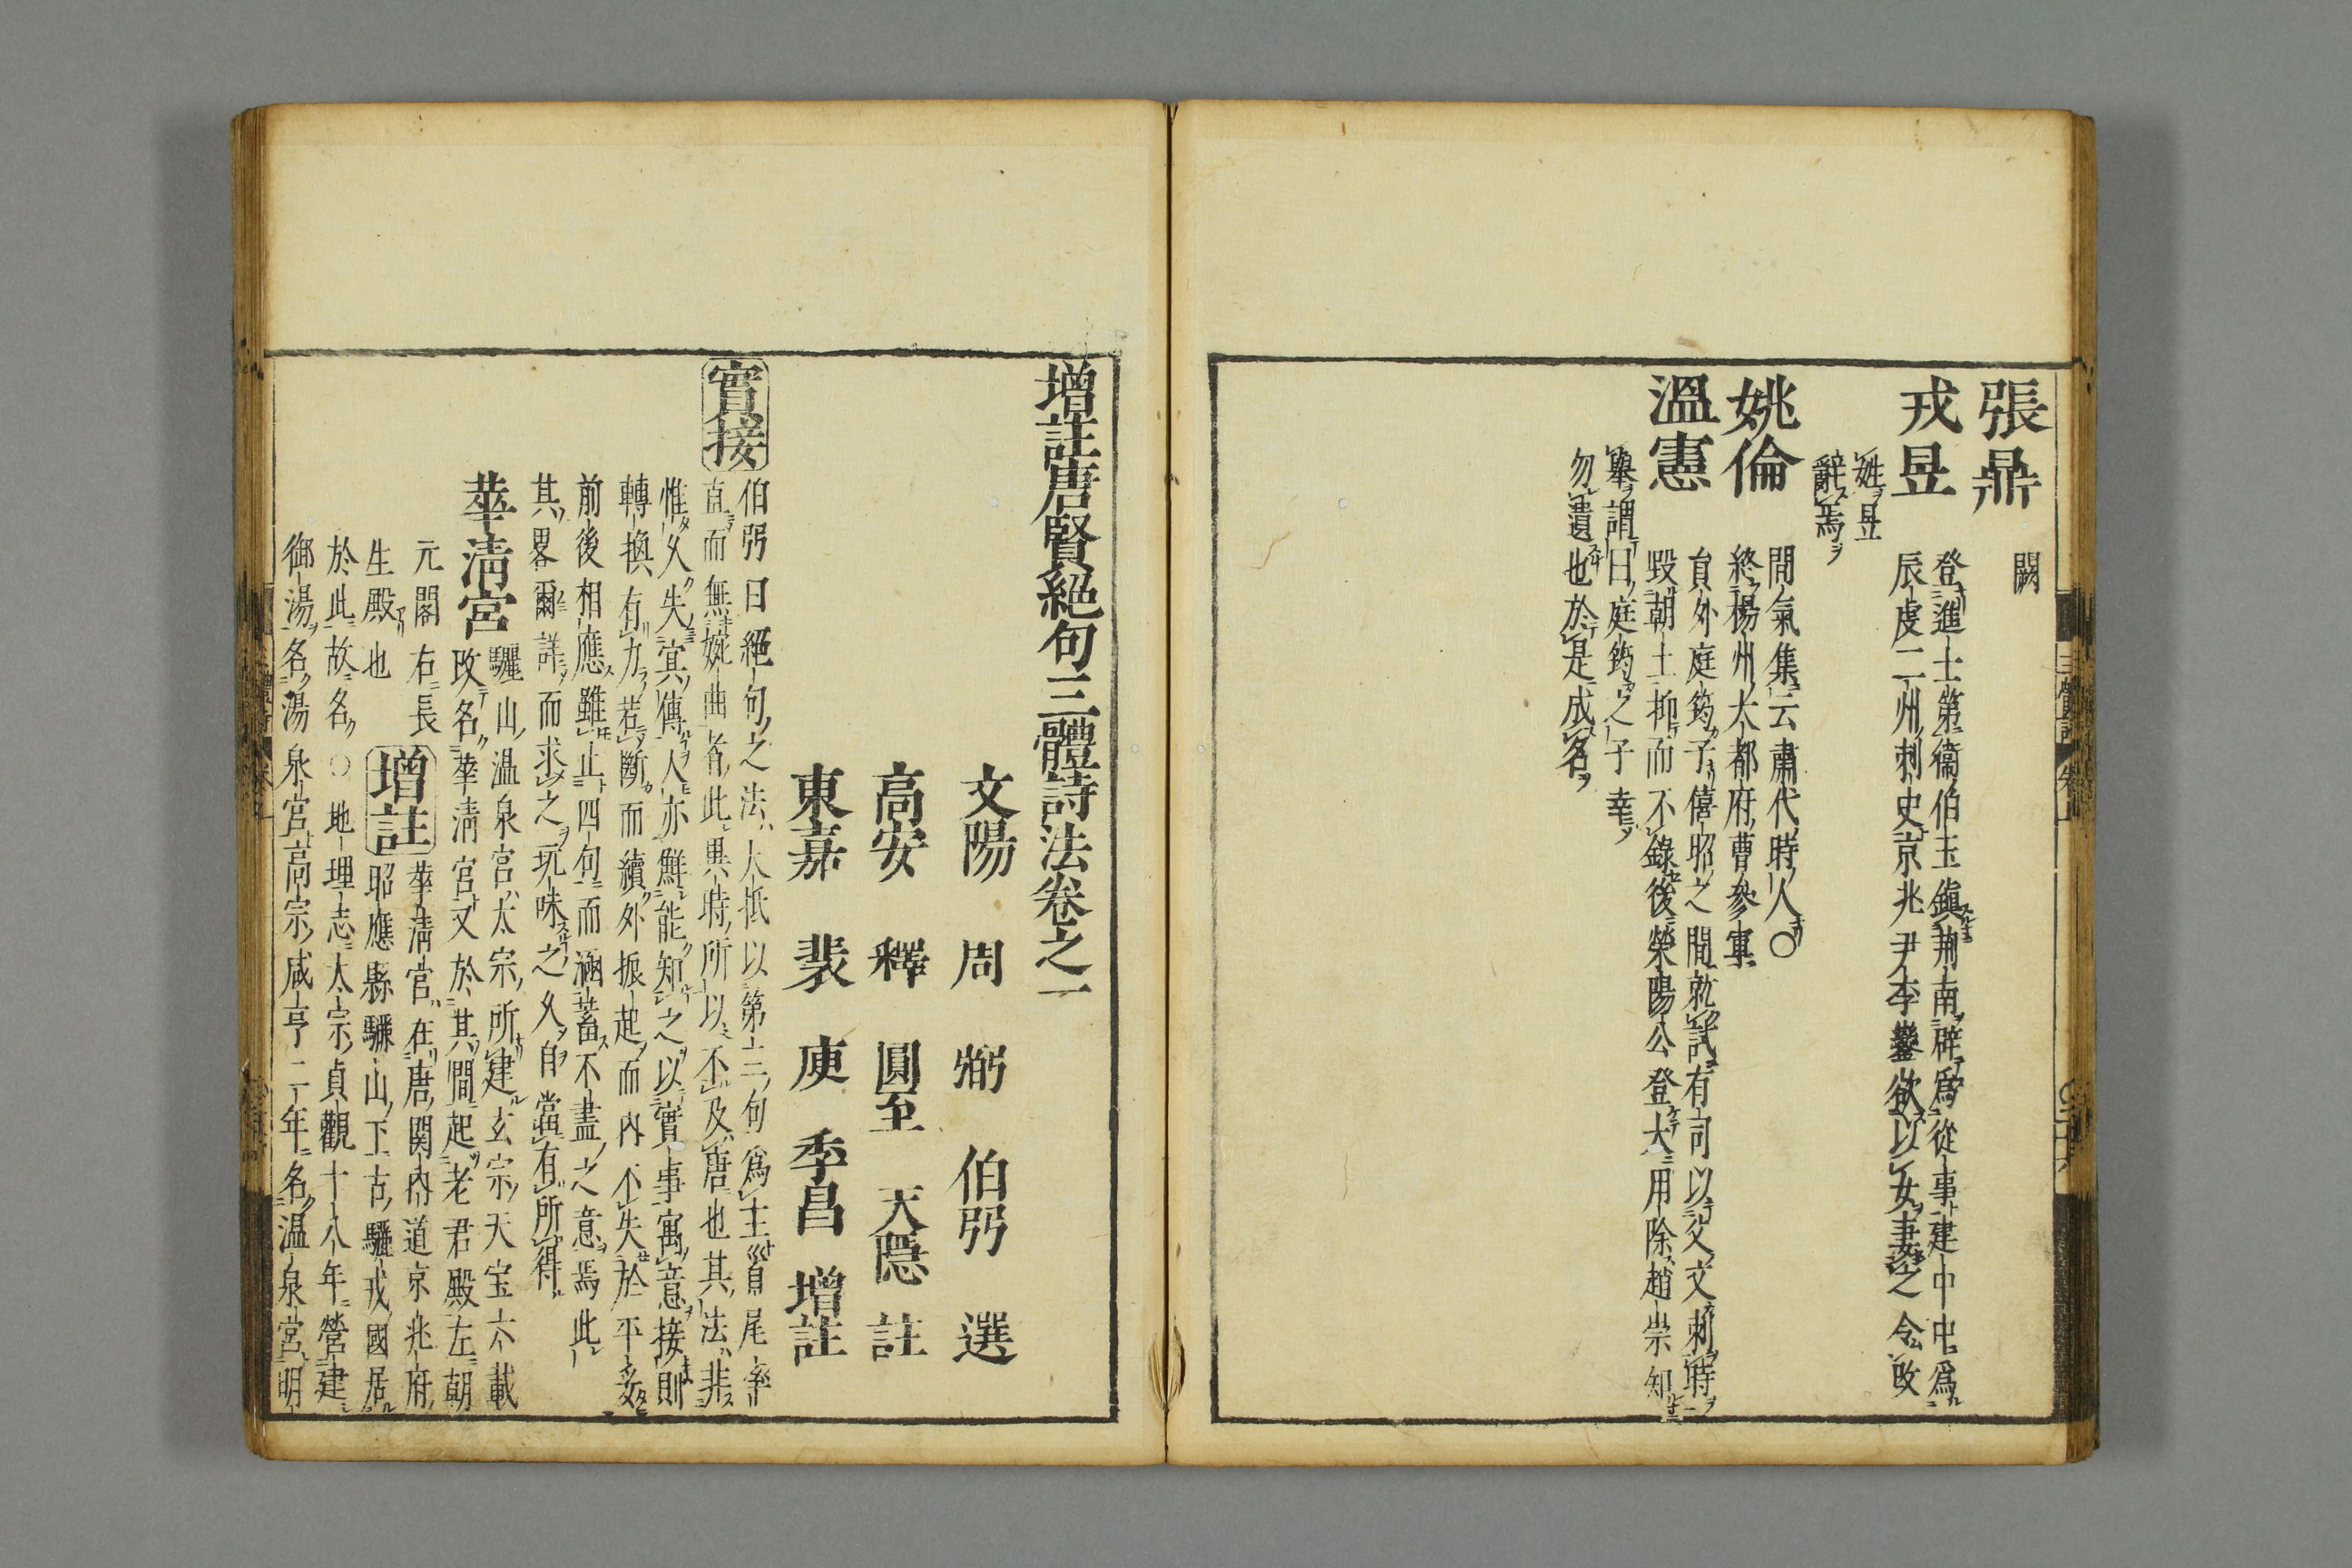 張鼎
闕
戎昱
登進士第衞伯玉鎭荆南辟爲從事建中中爲
辰虔二州刺史京兆尹李鑾欲以女妻之令改
姓昱
辭焉
姚倫
間氣集云肅代時人○
終楊州大都府曹參軍
溫憲
員外庭筠子僖昭之間就試有司以父文刺時
毀朝士抑而不錄後滎陽公登大用除趙崇知
舉謂曰庭筠之子幸
勿遺也於是成名
增註唐賢絕句三體詩法卷之一
汶陽 周 弼 伯弜 選
高安 釋 圓至 天隱 註
東嘉 裴 庾 季昌 增註
實接
伯弜曰絕句之法大抵以第三句爲主首尾率
直而無婉曲者此異時所以不及唐也其法非
惟久失其傳人亦鮮能知之以實事寓意接則
轉換有力若斷而續外振起而內不失於平妥
前後相應雖止四句而涵蓄不盡之意焉此
其畧爾詳而求之玩味之久自當有所得
華淸宮
驪山温泉宮太宗所建玄宗天宝六載
改名華淸宮又於其間起老君殿左朝
元閣右長
生殿也
增註
華淸宮在唐関內道京兆府
昭應縣驪山下古驪戎國居
於此故名○地理志太宗貞觀十八年營建
御湯名湯泉宮高宗咸亨二年名温泉宮明